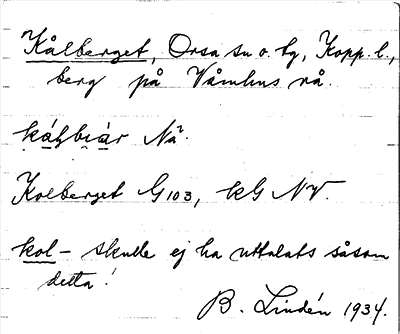 Kålberget, Orsa sn o. tg, Kopp. l.,
berg på Våmhus rå.
Nå².
Kolberget G103, kG NV.
kol- skulle ej ha uttalats såsom
detta!
B. Lindén 1934.